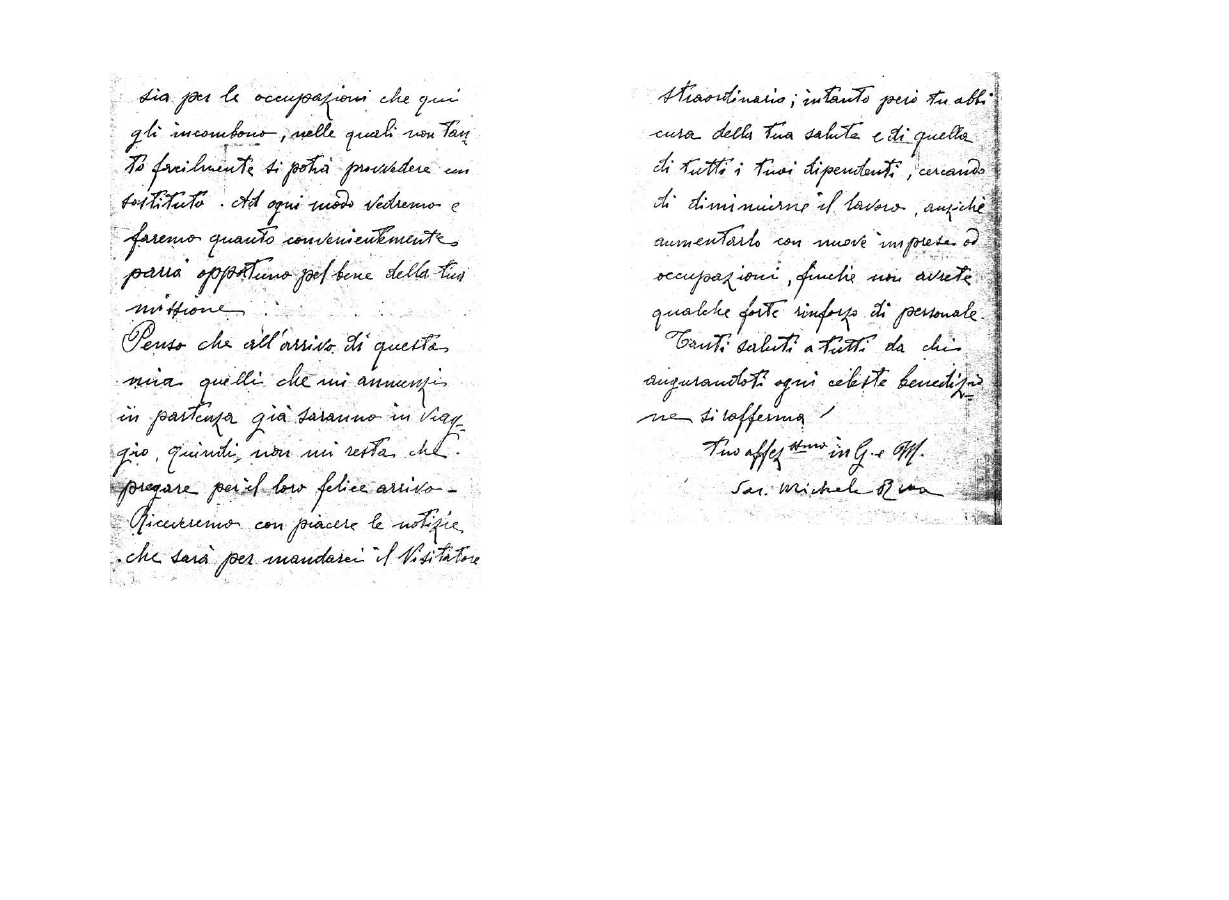 sia per le occupazioni che qui
gli incombono, nelle quali non tan
to facilmente si potrà provvedere un
sostituto. Ad ogni modo vedremo e
faremo quanto convenientemente
parrà opportuno pel bene della tua
missione.
Penso che all'arrivo di questa
mia quelli che mi annunzi
in partenza già saranno in viag-
gio, quindi, non mi resta che
pregare per il loro felice arrivo -
Riceveremo con piacere le notizie
che sarà per mandarci il Visitatore
straordinario; intanto però tu abbi
cura della tua salute e di quella
di tutti i tuoi dipendenti, cercando
di diminuirne il lavoro, anziché
aumentarlo con nuove imprese od
occupazioni, finché non avrete
qualche forte rinforzo di personale.
Tanti saluti a tutti da chi
augurandoti ogni celeste benedizio
ne si rafferma
tuo affez ssmo in G. e M.
Sac. Michele Rua